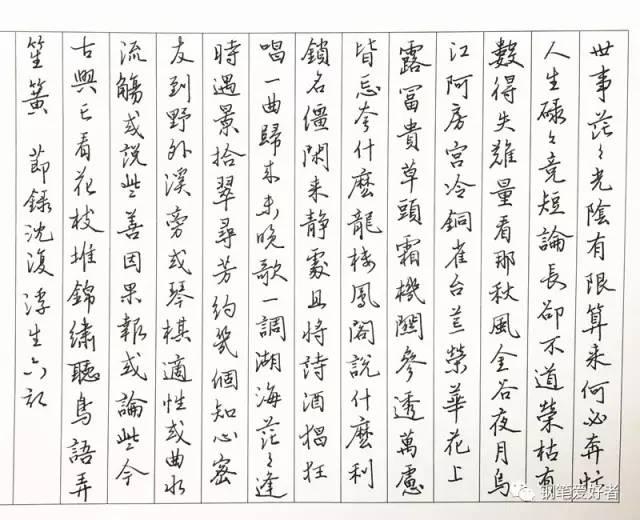 世事茫々光陰有限算来何必奔忙
人生碌々竞短論長卻不道榮枯有
數得失難量看那秋風金谷夜月烏
江阿房宫冷銅雀台荒榮華花上
露冨貴草頭霜機關参透萬慮
皆忘夸什麽龍楼鳳阁說什麽利
鎖名僵閑来静處且将詩酒猖狂
唱一曲歸来未晚歌一調湖海茫々逢
時遇景拾翠尋芳約幾個知心密
友到野外溪旁或琴棋適性或曲水
流觴或説些善因果報或論些今
古興亡看花枝堆錦繡聽鳥語弄
笙簧 節録沈復浮生六記
钢笔爱好者